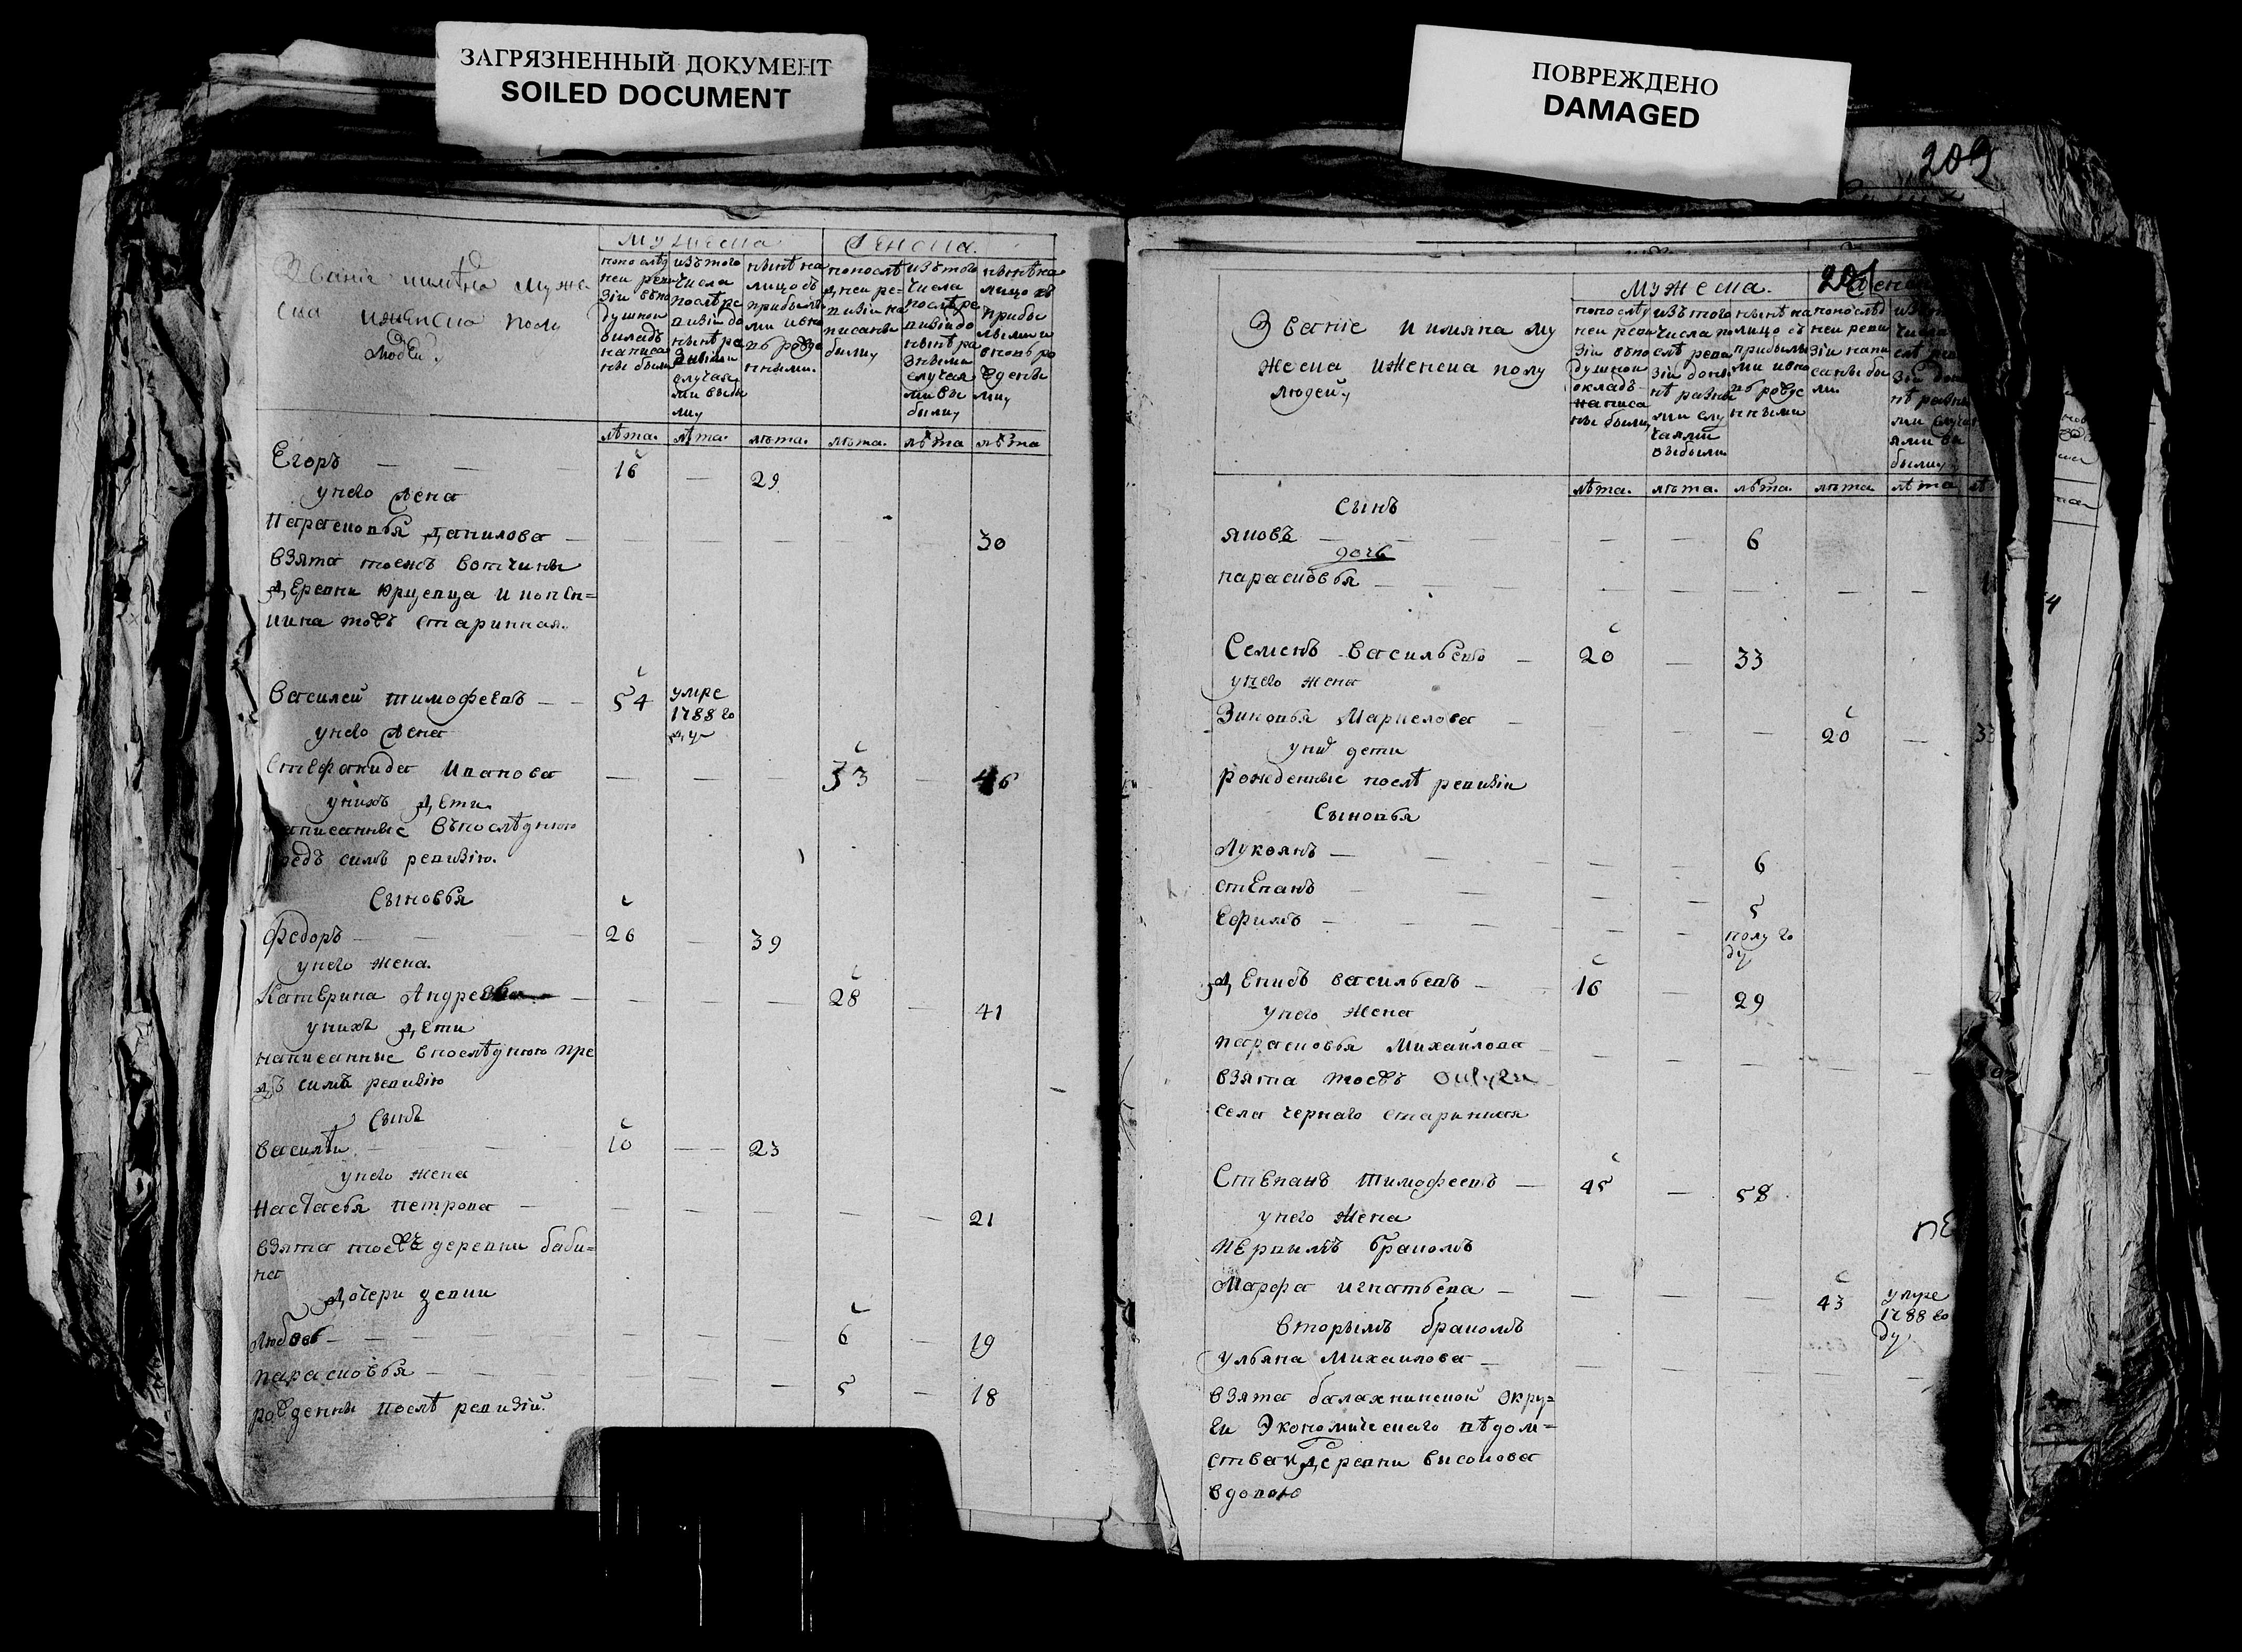 ЗАГРЯЗНЕННЫЙ ДОКУМЕНТ
SOILED DOCUMENT
ПОВРЕЖДЕНО
DAMAGED
209
Мужеска
Женска.
Званіе имяна муже
ска иженска полу
людей.
попослѣд
ней реви
зіи вьпо
душной
окладъ
написа
ны были
изътого
числа
послѣ ре
визіи до
нынѣ ра
зными
случая
ми выбы
ли
нынѣ на
лицо съ
прибылы
ми ивно
вь рожде
нными.
попослѣ
дней ре-
визіи на
писаны
были
изътого
числа
послѣ ре
визіи до
нынѣ ра
зными
случая
ми вы
были
нынѣ на
лицо съ
прибы
лыми и
вновь ро
жденны
ми
лѣта. лѣта. лѣта. лѣта. лѣта лѣта
Егоръ — 16 — 29
унего жена
Парасковья Данилова — 30
взята тоежъ вотчины
деревни Юрцевца
тожъ старинная.
Василей тимофеевъ — 54 умре
1788 го
ду
унего жена
Стефанида Иванова — 33 — 46
унихъ дети
написанные вьпослѣднюю
предъ симъ ревизію.
Сыновья
Федоръ — 26 — 39
унего жена.
Катерина Андреева — 28 — 41
унихъ дети
написанные впослѣднюю пре
дъ симъ ревизію
Сынъ
василѣи — 10 — 23
унего жена
Настасья петрова — 21
взята тоежъ деревни баби=
на
дочери девки
Любовь — 6 — 19
парасковья — 5 — 18
рожденны послѣ ревизіи.
201
Мужеска.
Женск
Званіе и имяна му
жеска иженска полу
людей
попослѣд
ней реви
зіи вьпо
душной
окладъ
написа
ны были
изътого
числа по
слѣ реви
зіи доны
нѣ разны
ми слу
чаями
выбыли
нынѣ на
лицо съ
прибылы
ми ивно
вь рожде
нными
попослѣд
ней реви
зіи напи
саны бы
ли.
лѣта. лѣта. лѣта. лѣта лѣта
Сынъ
яковъ — 6
дочь
парасковья —
Семенъ Васильевъ — 20 — 33
унего жена
Зиновья Маркелова — 20 — 33
унихъ дети
рожденные послѣ ревизіи
Сыновья
Лукоянъ — 6
степанъ — 5
Ефимъ — полу го
ду
Денисъ васильевъ — 16 — 29
унего жена
парасковья Михаилова
взята тоежъ округи
села чернаго старинная
Степанъ тимофеевъ — 45 — 58
унего жена
первымъ бракомъ
Марфа игнатьева — 43 умре
1788 го
ду
вторымъ бракомъ
ульяна Михаилова —
взята балахнинской окру=
ги Экономическаго вѣдом=
ства деревни высокова
вдовою